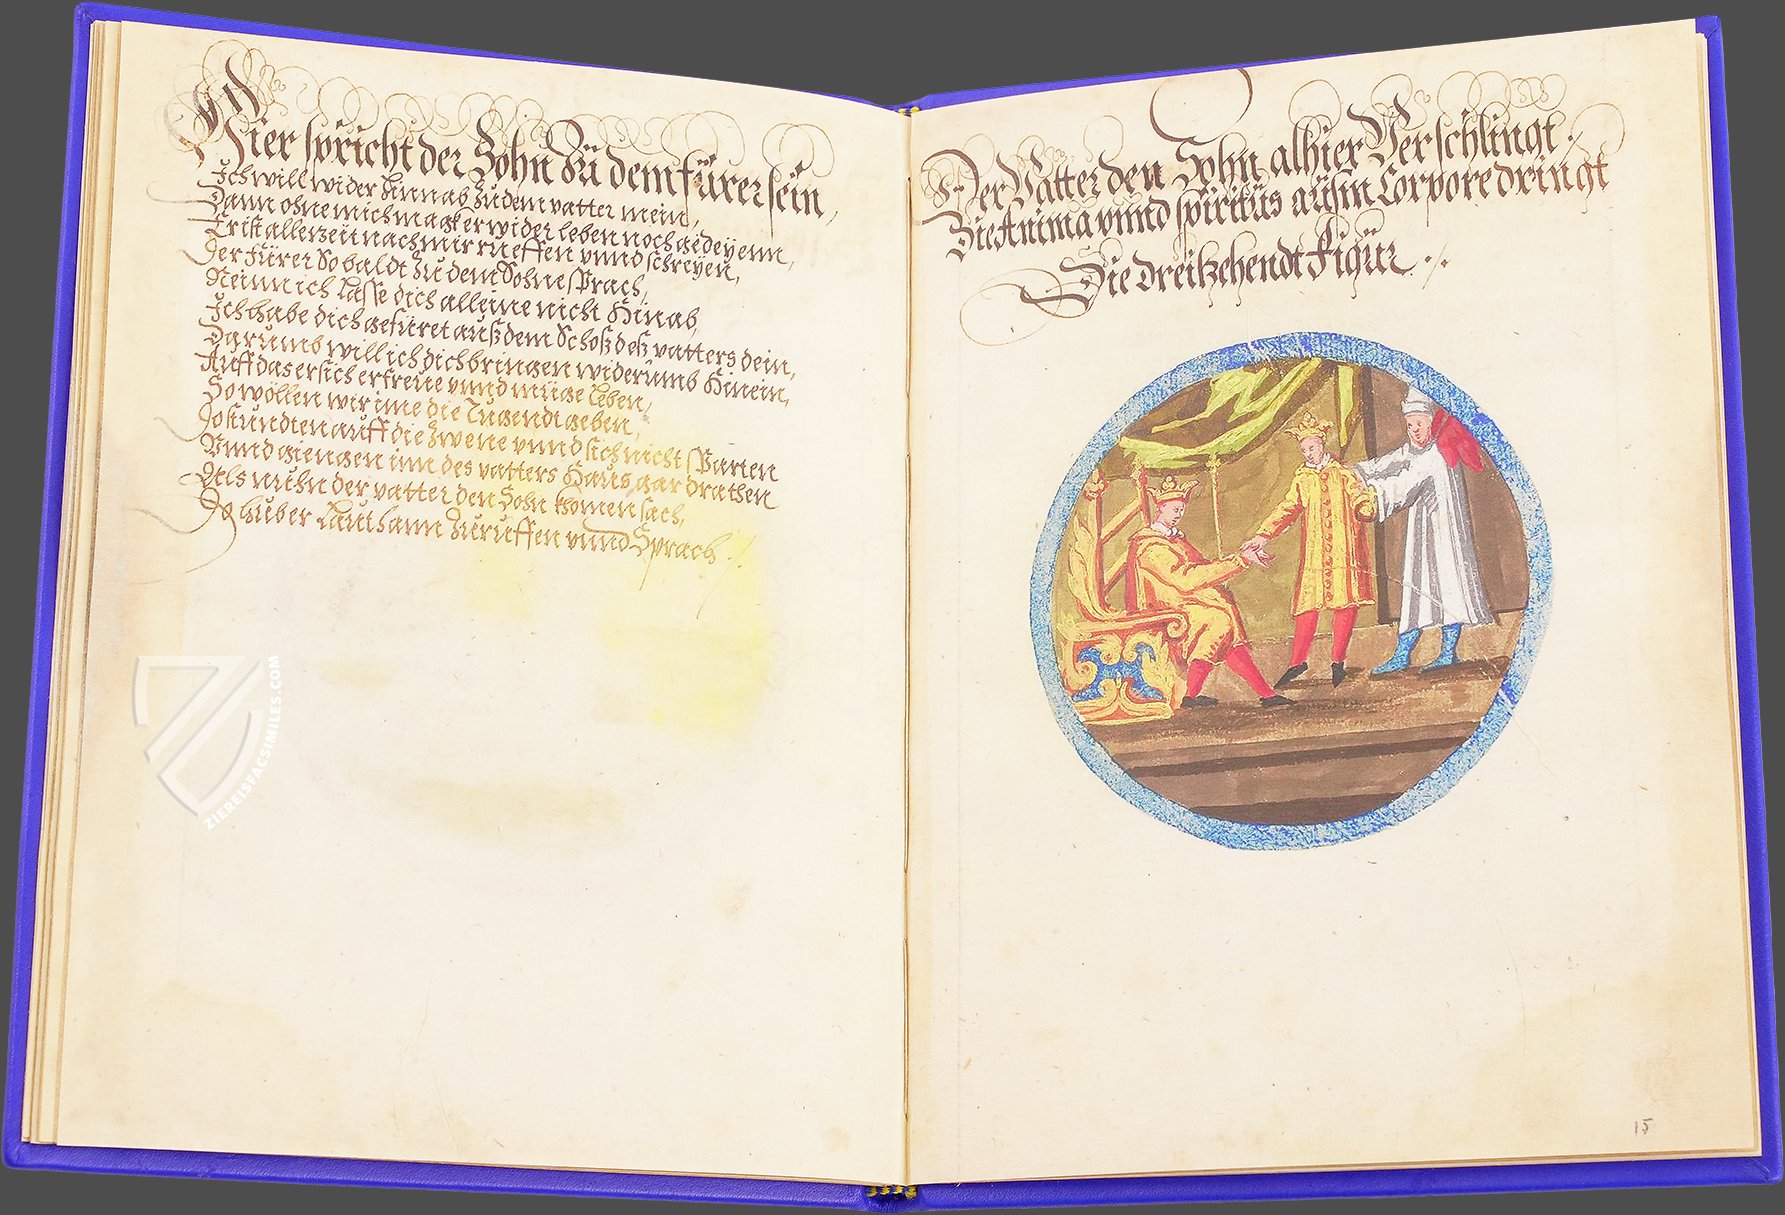 Hier spricht der Sohn Zu dem fürer sein,
Ich will wider hinnab Zu dem vatter mein,
Dann ohne mich mag er wider leben noch gedeyenn,
Er ist allerzeit nach mir rueffen unnd schreyen,
Der fürer Sobaldt Zu dem Sohne sprach,
Neinn ich Lasse dich alleine nicht Hinab,
Ich habe dich gefüret auß dem Schoß deß vatters dein,
Darumb will ich dich bringen widerumb Hinein,
Auff das er sich erfreue unnd müge Leben,
So wöllen wir ime die Tugendt geben,
Da stundten auff die Zwene unnd sich nicht sparten
Unnd giengen inn des vatters Haus gar drathen
Als nuhn der vatter den Sohn khomen sach,
Da huber Laut ann Zuruffen unnd Sprach ./.
Der Vatter den Sohn alhier Verschlingt.
Die Anima unnd spiritus ausm Corpore dringt
Die dreitzehendt Figur ./.
15
ZIEREISFACSIMILES.COM